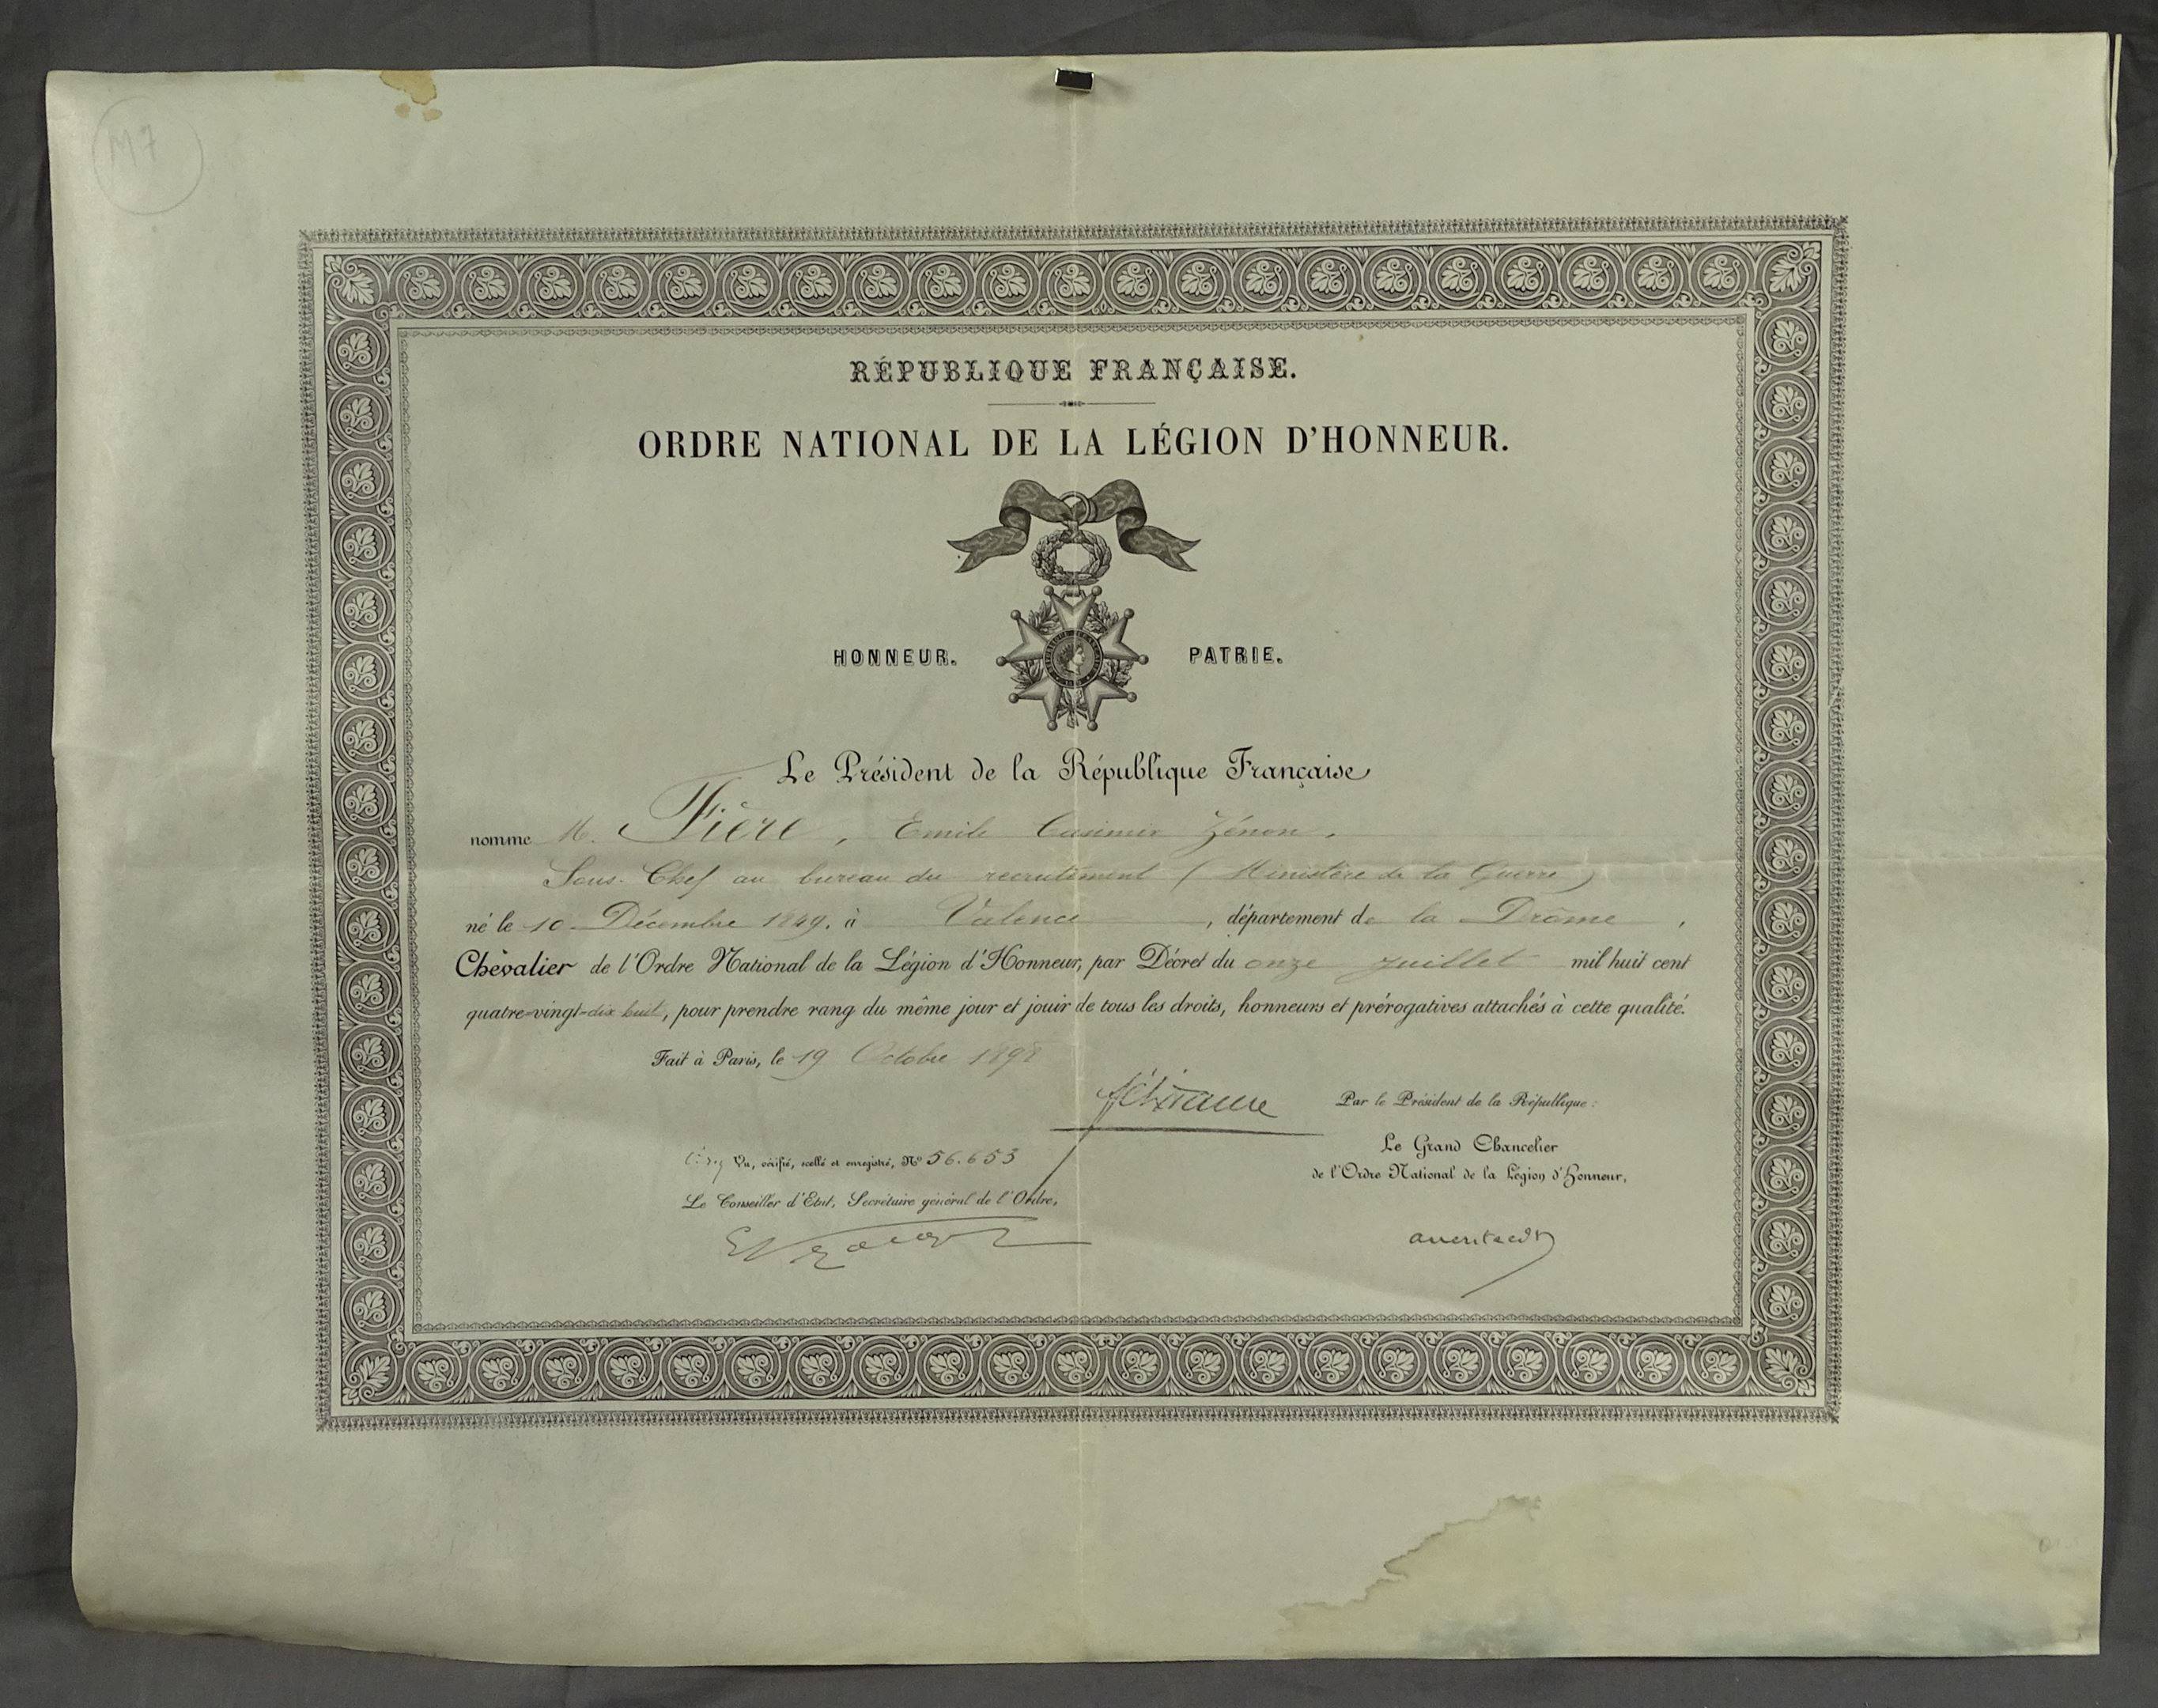 M7
RÉPUBLIQUE FRANÇAISE.
ORDRE NATIONAL DE LA LÉGION D'HONNEUR.
HONNEUR. PATRIE.
Le Président de la République Française
nomme M. Fière, Emile Casimir Zénon,
Sous-Chef au bureau du recrutement (Ministère de la Guerre)
né le 10 Décembre 1849, à Valence, département de la Drôme,
Chevalier de l'Ordre National de la Légion d'Honneur, par Décret du onze Juillet mil huit cent
quatre-vingt-dix huit, pour prendre rang du même jour et jouir de tous les droits, honneurs et prérogatives attachés à cette qualité.
Fait à Paris, le 19 Octobre 1898
Par le Président de la République:
Le Grand Chancelier
de l'Ordre National de la Légion d'Honneur,
Vu, vérifié, scellé et enregistré, N° 56.653
Le Conseiller d'État, Secrétaire général de l'Ordre,